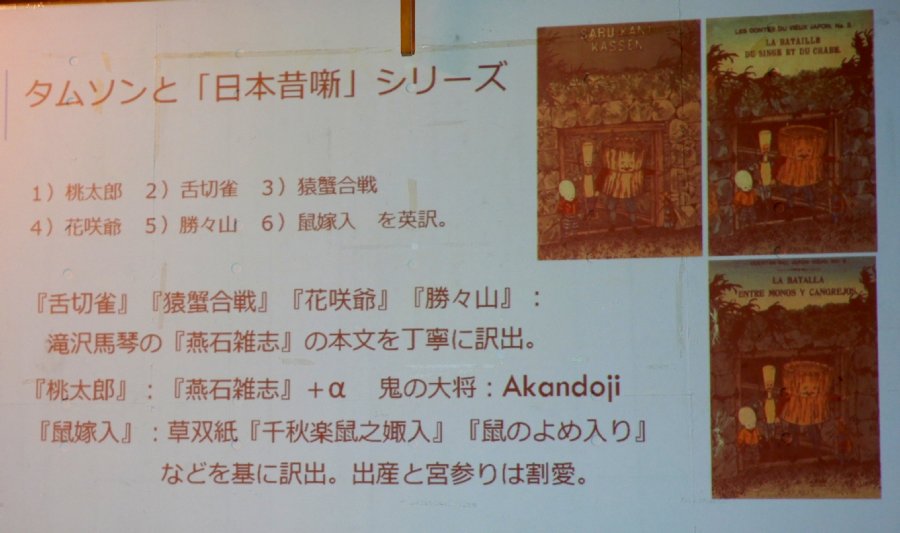 タムソンと「日本昔噺」シリーズ
1）桃太郎　2）舌切雀　3）猿蟹合戦
4）花咲爺　5）勝々山　6）鼠嫁入　を英訳。
『舌切雀』『猿蟹合戦』『花咲爺』『勝々山』：
滝沢馬琴の『燕石雑志』の本文を丁寧に訳出。
『桃太郎』：『燕石雑志』＋α　鬼の大将：Akandoji
『鼠嫁入』：草双紙『千秋楽鼠之娵入』『鼠のよめ入り』
などを基に訳出。出産と宮参りは割愛。
SARU KANI
KASSEN
LES CONTES DU VIEUX JAPON, No. 3.
LA BATAILLE
DU SINGE ET DU CRABE.
LA BATALLA
ENTRE MONOS Y CANGREJOS